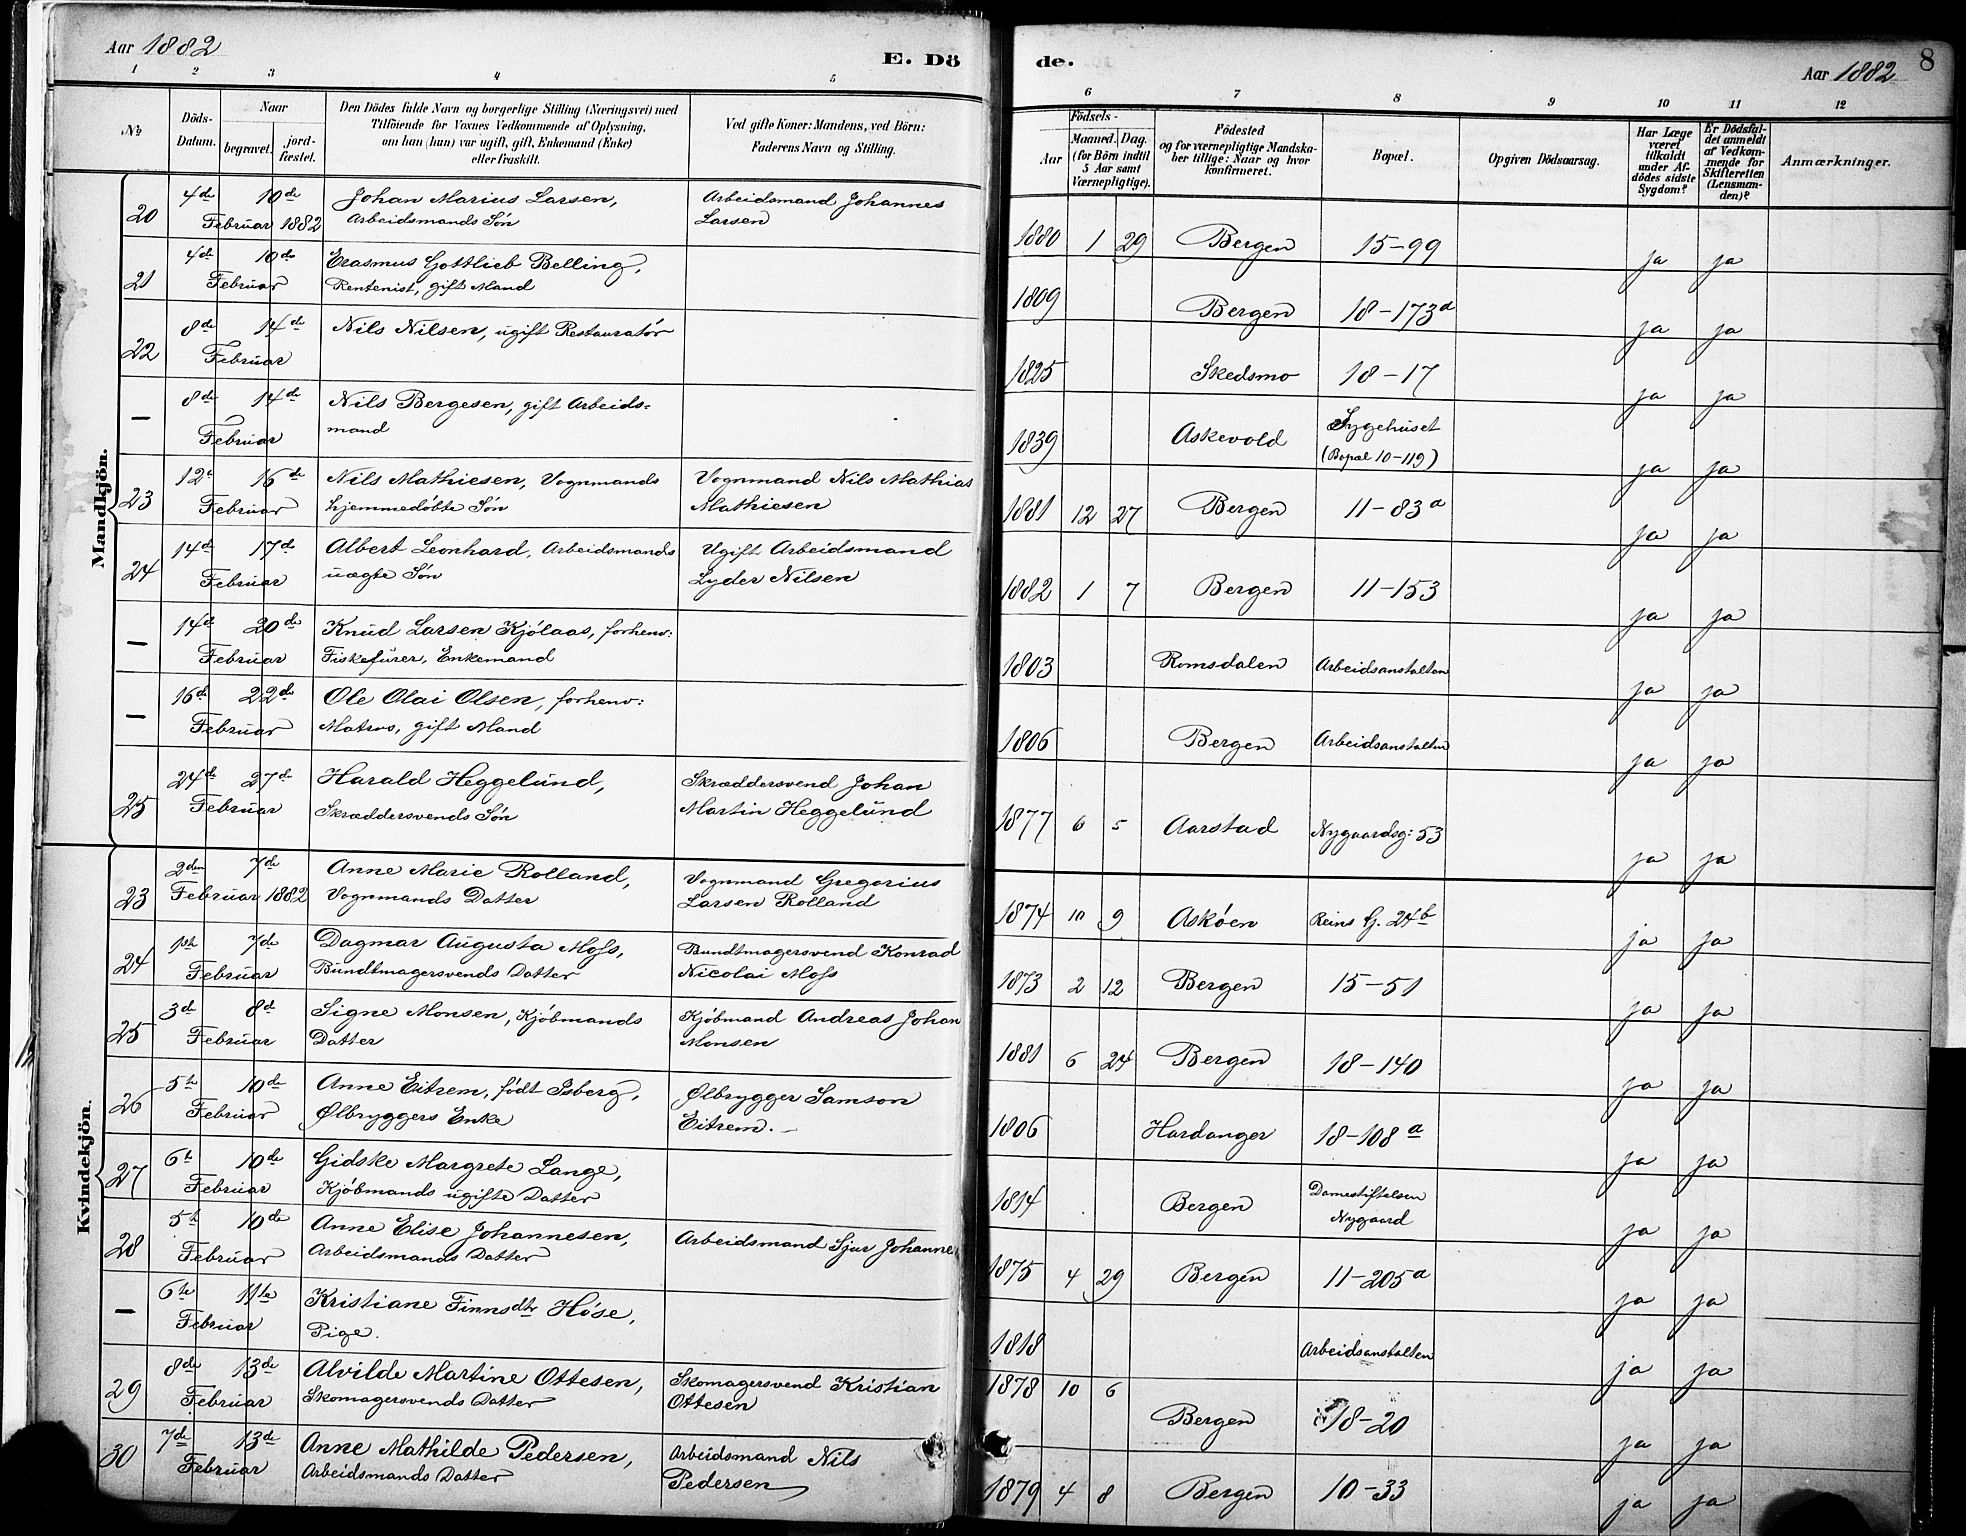 Aar 1882
E. Dö
de.
Aar 1882
8
1 2 3 4 5
6 7 8 9 10 11 12
№
Döds-
Datum.
Naar
begravet.
jord-
fæstet.
Den Dödes fulde Navn og borgerlige Stilling (Næringsvei) med
Tilföiende for Voxnes Vedkommende af Oplysning,
om han (hun) var ugift, gift, Enkemand (Enke)
eller fraskilt.
Ved gifte Koner: Mandens, ved Börn:
Faderens Navn og Stilling.
Födsels-
Aar
Maaned. Dag.
(for Börn indtil
5 Aar samt
Værnepligtige).
Födested
og for værnepligtige Mandska-
ber tillige: Naar og hvor
konfirmeret.
Bopæl.
Opgiven Dödsaarsag.
Har Læge
været
tilkaldt
under Af-
dödes sidste
Sygdom?
Er Dödsfal-
det anmeldt
af Vedkom-
mende for
Skifteretten
(Lensman-
den)?
Anmærkninger.
Mandkjön.
20 4de 10de Johan Marius Larsen, Arbeidsmand Johannes
Februar 1882 Arbeidsmands Søn Larsen
1880 1 29 Bergen 15-99 ja ja
21 4de 10de Erasmus Gottlieb Belling,
Februar Rentenist, gift Mand
1809 Bergen 18-173a ja ja
22 8de 14de Nils Nilsen, ugift Restauratør
Februar
1825 Skedsmo 18-17 ja ja
— 8de 14de Nils Bergesen, gift Arbeids-
Februar mand
1839 Askevold Sygehuset
(Bopæl 10-119) ja ja
23 12te 16de Nils Mathiesen, Vognmands Vognmand Nils Mathias
Februar hjemmedøbte Søn Mathiesen
1881 12 27 Bergen 11-83a ja ja
24 14de 17de Albert Leonhard, Arbeidsmands Ugift Arbeidsmand
Februar uægte Søn Lyder Nilsen
1882 1 7 Bergen 11-153 ja ja
— 14de 20de Knud Larsen Kjölaas, forhenv:
Februar Fiskefürer, Enkemand
1803 Romsdalen Arbeidsanstalten ja ja
— 16de 22de Ole Olai Olsen, forhenv:
Februar Matros, gift Mand
1806 Bergen Arbeidsanstalten ja ja
25 24de 27de Harald Heggelund, Skræddersvend Johan
Februar Skræddersvends Søn Martin Heggelund
1877 6 5 Aarstad Nygaardsg: 53 ja ja
Kvindekjön.
23 2den 7de Anne Marie Rolland, Vognmand Gregorius
Februar 1882 Vognmands Datter Larsen Rolland
1874 10 9 Askøen Reins G. 24b ja ja
24 1ste 7de Dagmar Augusta Moss, Bundtmagersvend Konrad
Februar Bundtmagersvends Datter Nicolai Moss
1873 2 12 Bergen 15-51 ja ja
25 3de 8de Signe Monsen, Kjøbmands Kjøbmand Andreas Johan
Februar Datter Monsen
1881 6 24 Bergen 18-140 ja ja
26 5te 10de Anne Eitrem, født Isberg, Ølbrygger Samson
Februar Ølbryggers Enke Eitrem.
1806 Hardanger 18-108a ja ja
27 6te 10de Gidske Margrete Lange,
Februar Kjøbmands ugifte Datter
1814 Bergen Damestiftelsen
Nygaard ja ja
28 5te 10de Anne Elise Johannesen, Arbeidsmand Sjur Johanne
Februar Arbeidsmands Datter
1875 4 29 Bergen 11-205a ja ja
— 6te 11te Kristiane Finnsdtr Høse,
Februar Pige.
1818 Arbeidsanstalten ja ja
29 8de 13de Alvilde Martine Ottesen, Skomagersvend Kristian
Februar Skomagersvends Datter Ottesen
1878 10 6 Bergen 18-20 ja ja
30 7de 13de Anne Mathilde Pedersen, Arbeidsmand Nils
Februar Arbeidsmands Datter Pedersen
1879 4 8 Bergen 10-33 ja ja